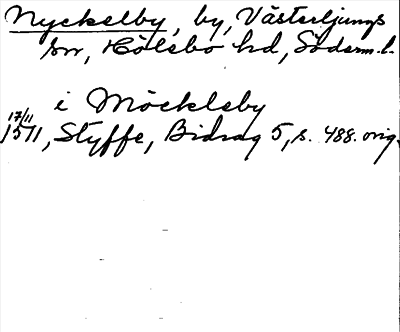 Nyckelby, by, Västerljungs
sn, Hölebo hd, Söderm. l.
i Möckleby
17/11
1511, Styffe, Bidrag 5, s. 488. orig.